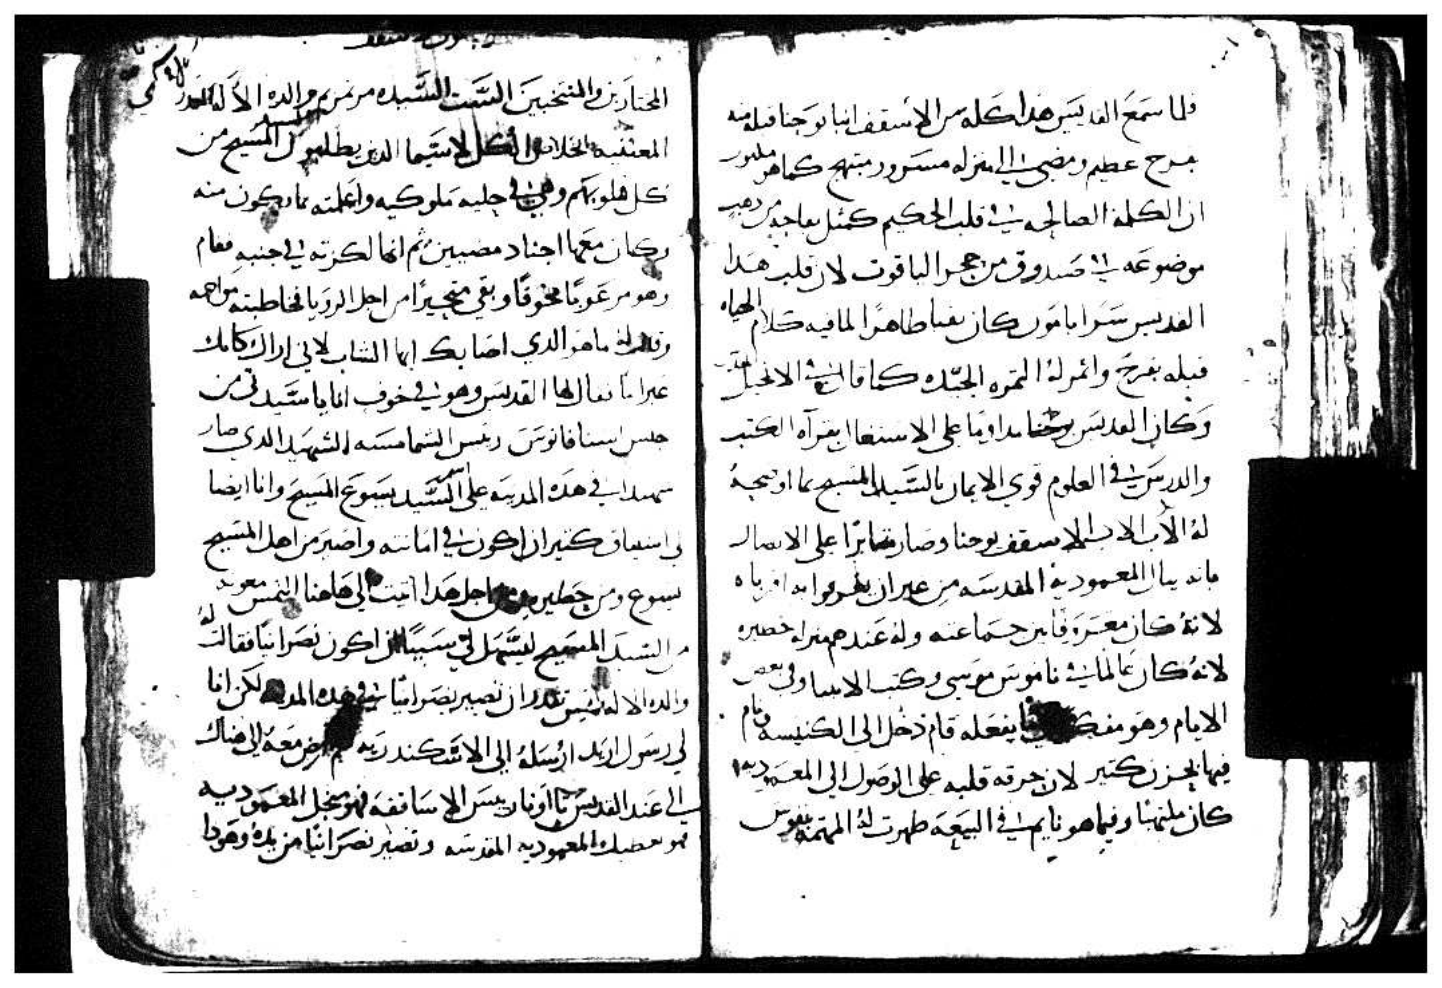 فلما سمع القديس هذا كله من الاسقف انبا يوحنا قبله منه
بفرح عظيم ومضى الي منزله مسرور مبتهج كما هو
ان الكلمة الصالحه في قلب الحكيم كمثل من دهب
موضوعه في صندوق من حجر الياقوت لان قلب هذا
القديس كان نقيا طاهرا لما فيه كلام الحياه
قبله بفرح واثمر له الثمره الجيده كما قال في الانجيل
وكان القديس يوحنا مداوما على الاستغال بقرآه الكتب
والدرس في العلوم قوي الايمان بالسيد المسيح بما اوضحه
له الأب الاسقف يوحنا وصار مثابرا على الاتصال
بانه ينال المعموديه المقدسه من غير ان به اقرباه
لانه كان معروفا بين جماعته وله عندهم منزله
لانه كان عالما في ناموس موسى وكتب الانبيا وفي بعض
الايام وهو يفعله قام دخل الى الكنيسه ونام
فيها بحزن كتير لان حرقه قلبه على الوصول الي المعموديه
كان ملتهبا وفيما هو نايم في البيعه ظهرت له
المختارين والمنتخبين الست السيده مرتمريم والدة الاله
المعتنيه بخلاص الكل لاسيما الدين يطلبون المسيح من
كل قلوبهم وهي في حليه ملوكيه واعلمته بما يكون منه
وكان معها اجناد مضيين ثم انها لكزته في جنبه فقام
وهو مرعوبا مخوفا وبقي متحيرا من اجل الرويا فخاطبته
وقالت له ما هو الدي اصابك ايها الشاب لاني اراك
فقال لها القديس وهو في خوف انا يا ستي من
جنس اسطفانوس رييس الشمامسه الشهيد الدي صار
شهيدا في هده المدينه على اسم السيد يسوع المسيح وانا ايضا
لي اشتياق كتير ان اكون في امانته واصير من اهل المسيح
يسوع ومن اجل هدا اتيت الي هاهنا التمس معونه
من السيد المسيح ليسهل لي سببا ان اكون نصرانيا فقالت له
والدة الاله ليس تقدر ان تصير نصرانيا في هده المدينه لكن انا
لي رسول اريد ارسله الى الاسكندريه قم امض معه الي هناك
الي عند القديس تااونا رييس الاساقفه
فهو يعطيك المعموديه المقدسه وتصير نصرانيا من يده وهودا